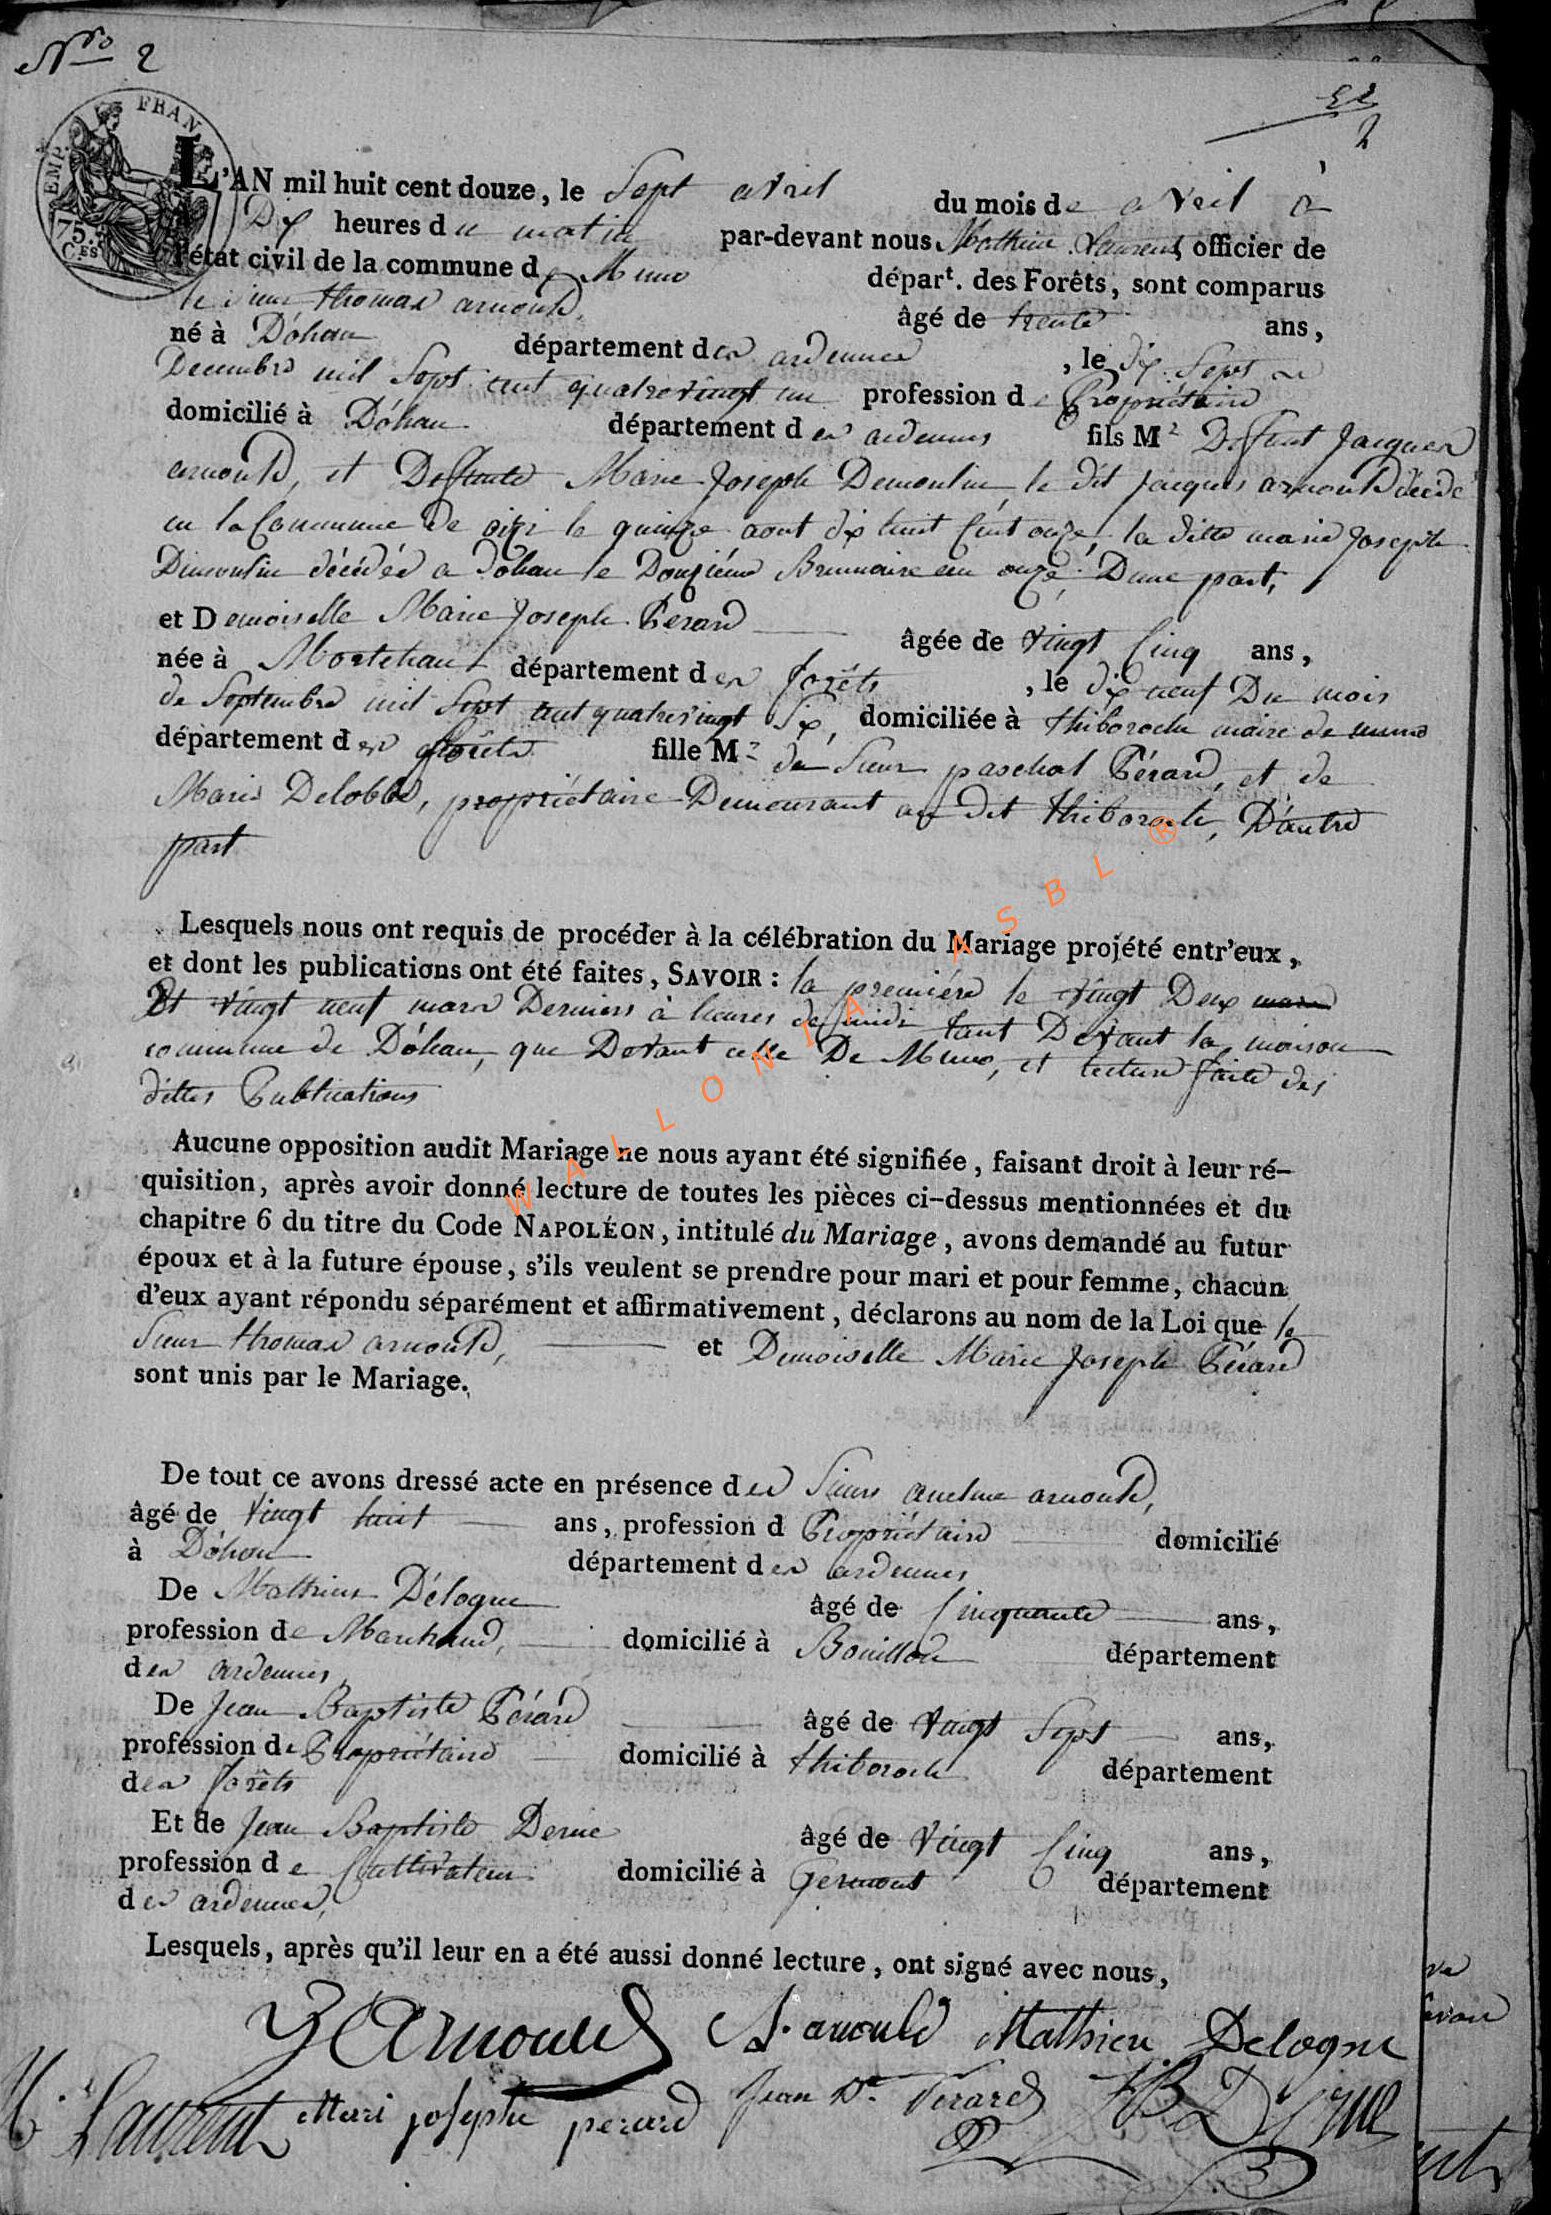 Nro 2
22
2
EMP. FRAN
75 CES
L'AN mil huit cent douze, le Sept avril du mois de avril à
Dix heures du matin par-devant nous Mathieu Laurent, officier de
l'état civil de la commune de Muno départ. des Forêts, sont comparus
le sieur thomas arnould, âgé de trente ans,
né à Dóhan département des ardennes, le dix Sept
Decembre mil Sept cent quatrevingt un profession de Propriétaire
domicilié à Dóhan département des ardennes fils Mr Deffunt Jacques
arnould, et Deffunte Marie Joseph Demoulin, le dit Jacques arnould décédé
en la Commune de oizi le quinze aout dix huit Cent onze, la ditte marie Joseph
Dimoulin décédée a Dohan le Douzième Brumaire an onze, D'une part,
et Demoiselle Marie Joseph Perard âgée de vingt Cinq ans,
née à Mortehan département des forêts, le dix neuf Du mois
de Septembre mil Sept cent quatrevingt Six, domiciliée à thiboroche mairie de muno
département des forêts fille Mr du Sieur paschal Pérard, et de
Marie Delobbe, propriétaire Demeurant au dit thiboroche, D'autre
part
Lesquels nous ont requis de procéder à la célébration du Mariage projété entr'eux,
et dont les publications ont été faites, SAVOIR : la première le vingt Deux mars
Et vingt neuf mars Derniers à heures de midi tant Devant la maison
commune de Dóhan, que Devant celle De Muno, et lecture faite des
dittes Publications
Aucune opposition audit Mariage ne nous ayant été signifiée, faisant droit à leur ré-
quisition, après avoir donné lecture de toutes les pièces ci-dessus mentionnées et du
chapitre 6 du titre du Code NAPOLÉON, intitulé du Mariage, avons demandé au futur
époux et à la future épouse, s'ils veulent se prendre pour mari et pour femme, chacun
d'eux ayant répondu séparément et affirmativement, déclarons au nom de la Loi que le
Sieur thomas arnould, et Demoiselle Marie Joseph Pérard
sont unis par le Mariage.
De tout ce avons dressé acte en présence des Sieurs anselme arnould,
âgé de vingt huit ans, profession d Propriétaire domicilié
à Dóhan département des ardennes
De Mathieu Délogne âgé de Cinquante ans,
profession de Marchand, domicilié à Bouillon département
des ardennes,
De Jean Baptiste Pérard âgé de vingt Sept ans,
profession de Propriétaire domicilié à thiboroche département
des forêts
Et de Jean Baptiste Derue âgé de vingt Cinq ans,
profession de Cultivateur domicilié à Gernont département
des ardennes,
Lesquels, après qu'il leur en a été aussi donné lecture, ont signé avec nous,
Arnould A. arnould Mathieu Delogne
M. Laurent Mari josephe perard Jean Bte Perard JB Derue
WALLONIA ASBL ®